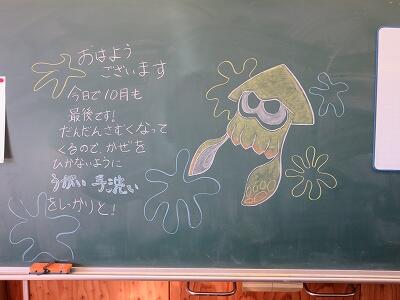 おはよう
ございます
今日で10月も
最後です!
だんだんさむくなって
くるので、かぜを
ひかないように
うがい 手洗い
をしっかりと!